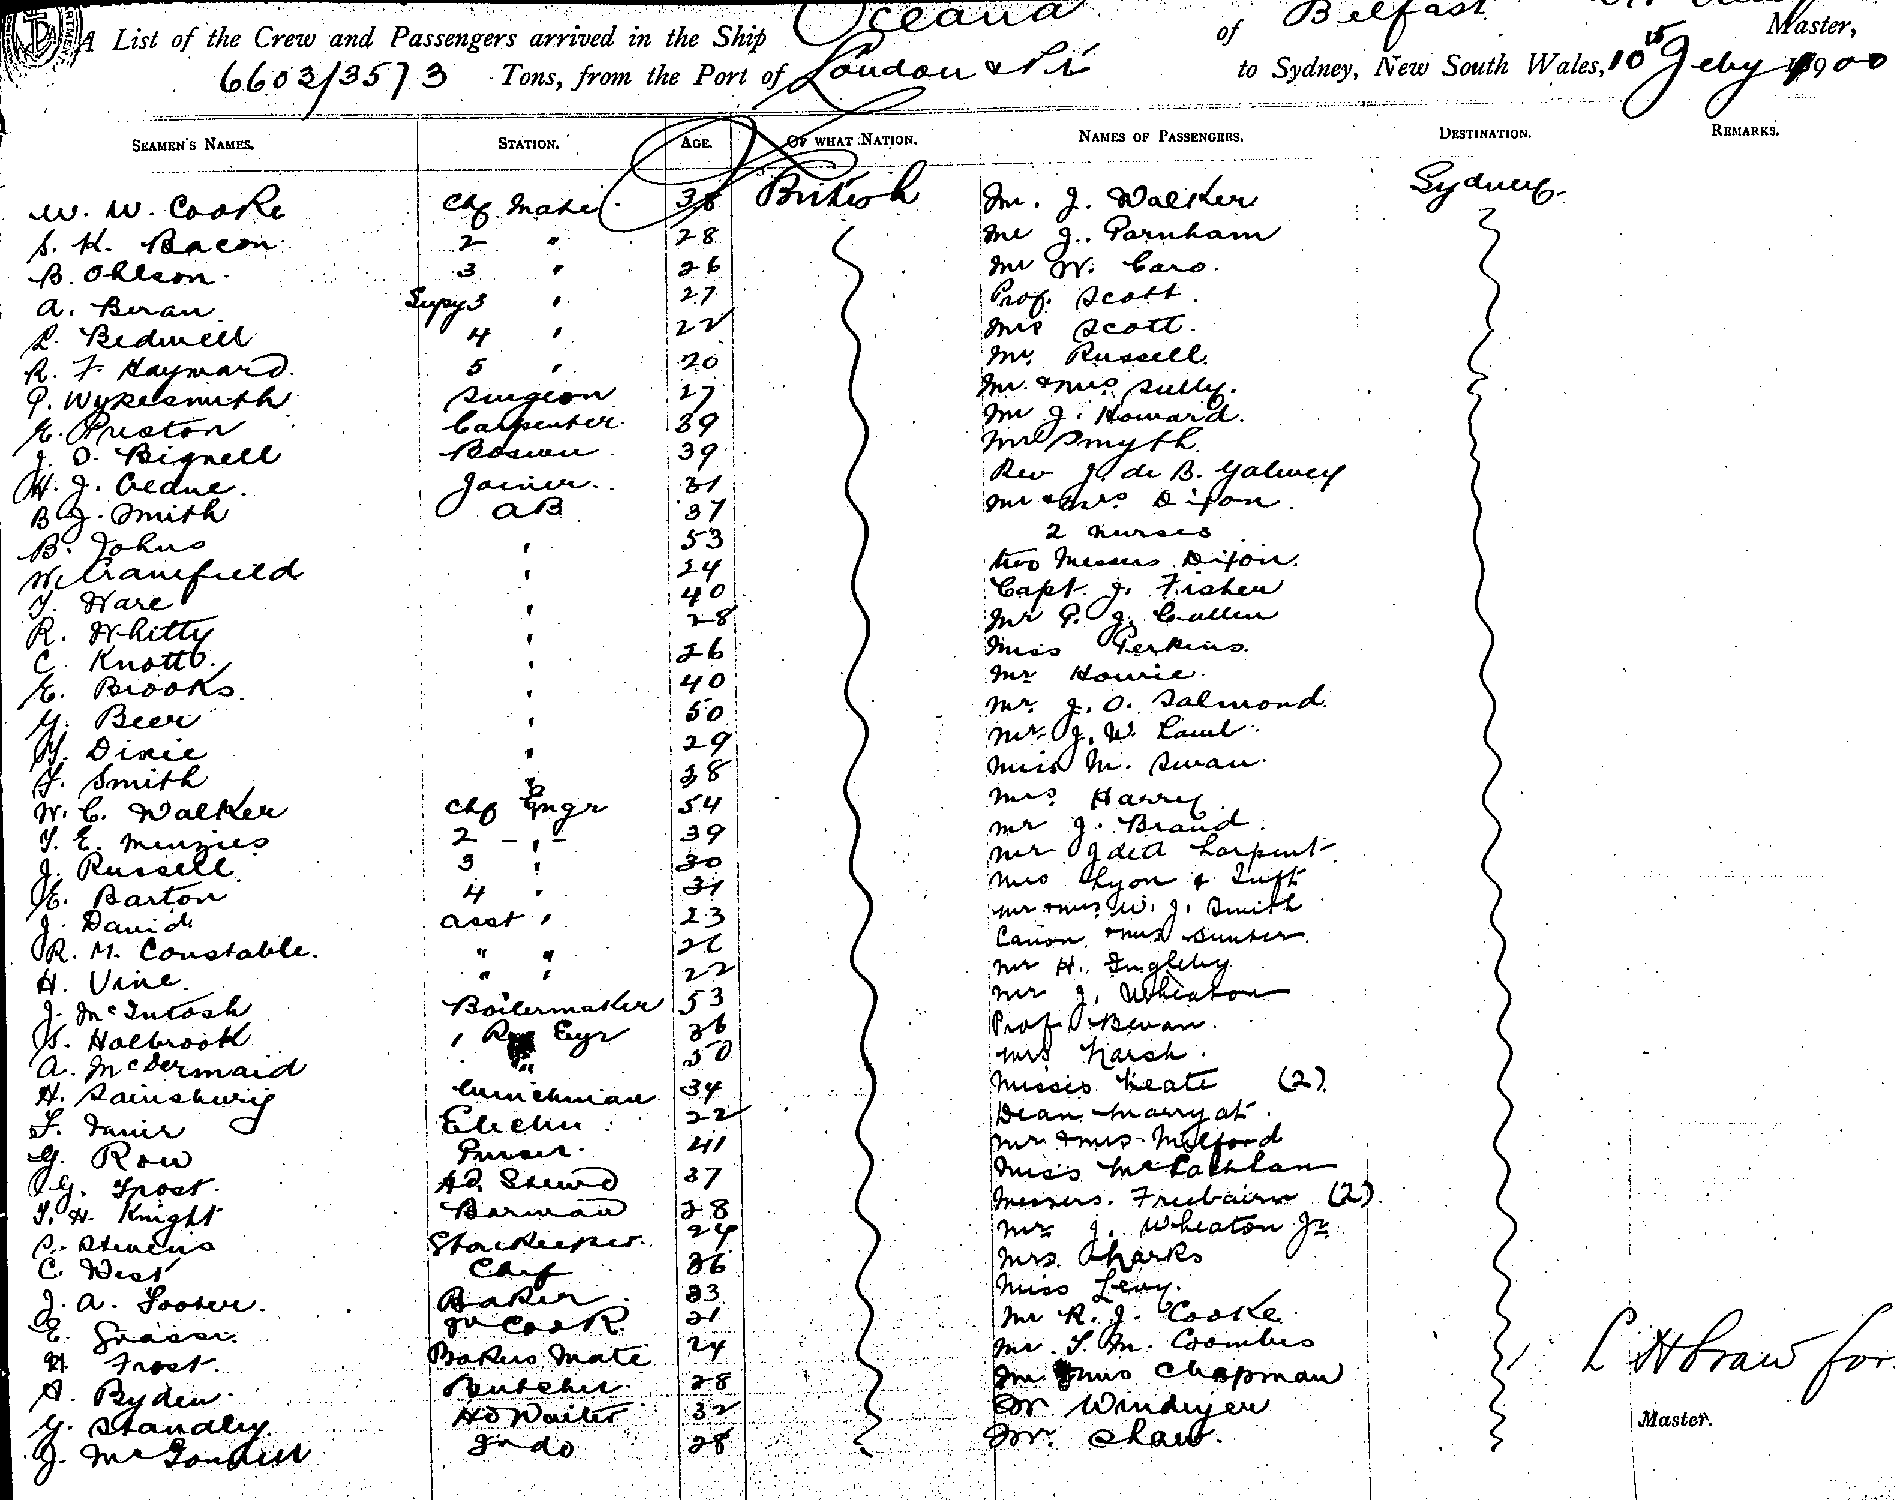 Oceana of Belfast
A List of the Crew and Passengers arrived in the Ship Master,
6603/3573 Tons, from the Port of London & to Sydney, New South Wales, 10th Feby 1900
SEAMEN'S NAMES. STATION. AGE. OF WHAT NATION. NAMES OF PASSENGERS. DESTINATION. REMARKS.
W. W. Cooke Chf Mate 38 British Mr. J. Walker Sydney
S. K. Bacon 2 " 28 Mr J. Parnham
B. Ohlson 3 " 26 Mr W. Caro.
A. Beran Supy 3 " 27 Prof. Scott.
L. Bedwell 4 " 22 Mrs Scott.
R. F. Hayward 5 " 20 Mr. Russell
P. Wykesmith Surgeon 27 Mr. & Mrs Sully.
E. Preston Carpenter 39 Mr J. Howard.
J. O. Bignell Bosun 39 Mr Smyth
H. J. Cleane. Joiner 31 Rev J. de B. Galwey
B J. Smith AB 37 Mr & Mrs Dixon
B. Johns " 53 2 nurses
W. Cranefield " 24 two Messrs Dixon.
T. Ware " 40 Capt. J. Fisher
R. Whitty " 28 Mr P. J. Cullen
C. Knott " 26 Miss Perkins
E. Brooks " 40 Mr Howie
G. Beer " 50 Mr. J. O. Salmond
H. Dixie " 29 Mr. J. W. Lamb
F. Smith " 38 Miss M. Swan
W. C. Walker Chf Engr 54 Mrs Harry
T. E. Menzies 2 " 39 Mr J. Brand
J. Russell 3 " 30 Mr Larpent
E. Barton 4 " 31 Mrs Lyon & Tuft
J. David Asst " 23 Mr & Mrs W. J. Smith
R. M. Constable. " " 26 Canon & Mrs Sunter
H. Vine. " " 22 Mr H. Ingleby
J. McIntosh Boilermaker 53 Mr J. Wheaton
S. Holbrook " 36 Prof Bevan.
A. McDermaid " 50 Mrs Marsh.
H. Sainsbury Winchman 34 Misses Keats (2)
F. Elecn 22 Dean Marryat.
G. Row Purser 41 Mr & Mrs Milford
G. Frost Hd Stewd 37 Miss McLachlan
T. H. Knight Barman 28 Messrs. Freebairn (2)
C. Stevens Storekeeper 24 Mr J. Wheaton Jr
C. West Chef 36 Mrs Sharks
J. A. Looser. Baker 33 Miss Levy.
E. Grassi. Jr Cook 21 Mr R. J. Cooke
H. Frost. Bakers Mate 24 Mr. T. M. Coombes
A. Byden Butcher 28 Mr & Mrs Chapman L H Craw for
G. Standley Hd Waiter 32 Dr Windeyer Master.
J. Jr do 28 Mr. Shaw.